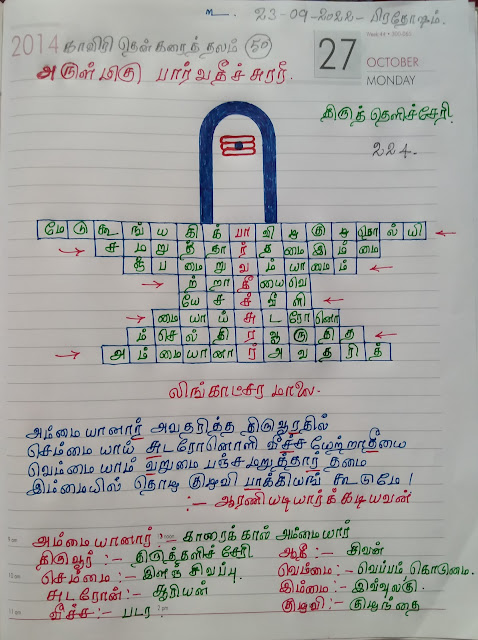 ௳. 23-09-2022 - பிரதோஷம்.
2014 காவிரி தென் கரைத் தலம் 50
27 OCTOBER
MONDAY
அருள்மிகு பார்வதீச்சுரர்.
திருத்தெளிச்சேரி.
224.
மே டு கூ ங் ய கி க் பா வி ழ கு ழ மொ ல் யி
ச ம று த் கா ர் த மை இ ம் மை
த் ப மை று வ ம் யா மை ம்
ற் றா தீ யை வெ
யே ச் ச் வீ ளி
மை யா ய் சு ட ரோ னொ
ம் செ ல் தி ர வூ ரு தி த
அ ம் மை யா னா ர் அ வ த ரி த்
லிங்காட்சர மாலை.
அம்மையானார் அவதரித்த திருவூரதில்
செம்மையாய் சுடரோனொளி வீச்ச யேற்றாதீயை
வெம்மையாம் வறுமை பஞ்சமறுத்கார் தமை
இம்மையில் தொழ குழவி பாக்கியங் கூடுமே!
:- ஆரணியடியார்க்கடியவன்
அம்மையானார் :- காரைக்கால் அம்மையார்
திருவூர் :- திருத்தளிச் சேரி ஆதீ :- சிவன்
செம்மை :- இளஞ் சிவப்பு. வெம்மை :- வெப்பம், கொடுமை.
சுடரோன் :- சூரியன் இம்மை :- இவ்வுலகு.
வீச்ச :- படர குழவி :- குழந்தை